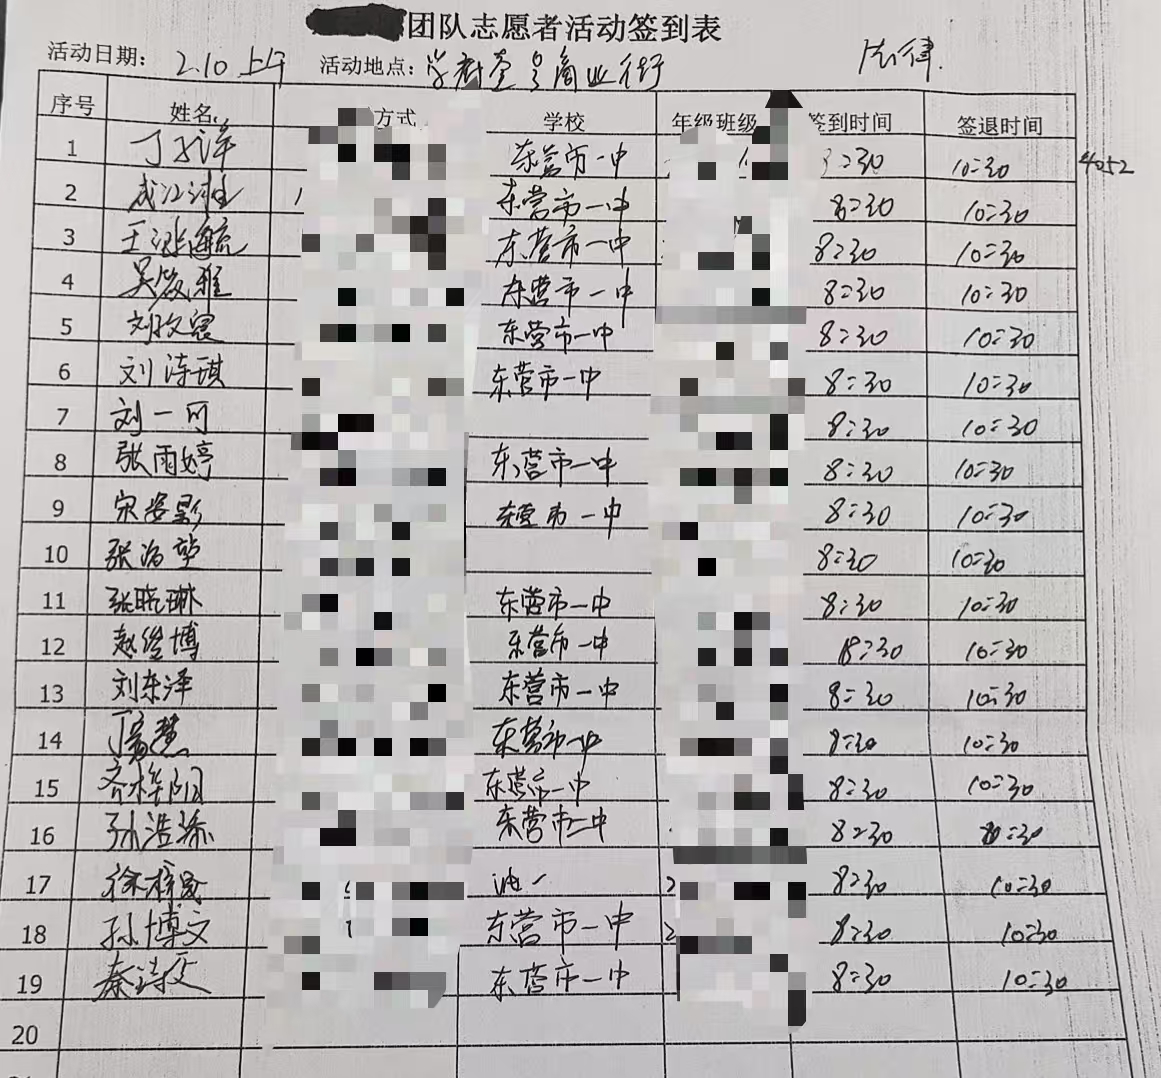 团队志愿者活动签到表
活动日期： 2.10 上午 活动地点： 商业街 法律.
序号 姓名 方式 学校 年级班级 签到时间 签退时间
1 东营市一中 8:30 10:30 4052
2 东营市一中 8:30 10:30
3 东营市一中 8:30 10:30
4 东营市一中 8:30 10:30
5 东营市一中 8:30 10:30
6 刘 琪 东营市一中 8:30 10:30
7 刘一可 8:30 10:30
8 张雨婷 东营市一中 8:30 10:30
9 宋姿影 东营市一中 8:30 10:30
10 8:30 10:30
11 张晓琳 东营市一中 8:30 10:30
12 东营市一中 8:30 10:30
13 刘东泽 东营市一中 8:30 10:30
14 东营市一中 8:30 10:30
15 东营市一中 8:30 10:30
16 孙浩添 东营市二中 8:30 10:30
17 8:30 10:30
18 孙博文 东营市一中 8:30 10:30
19 秦诗文 东营市一中 8:30 10:30
20